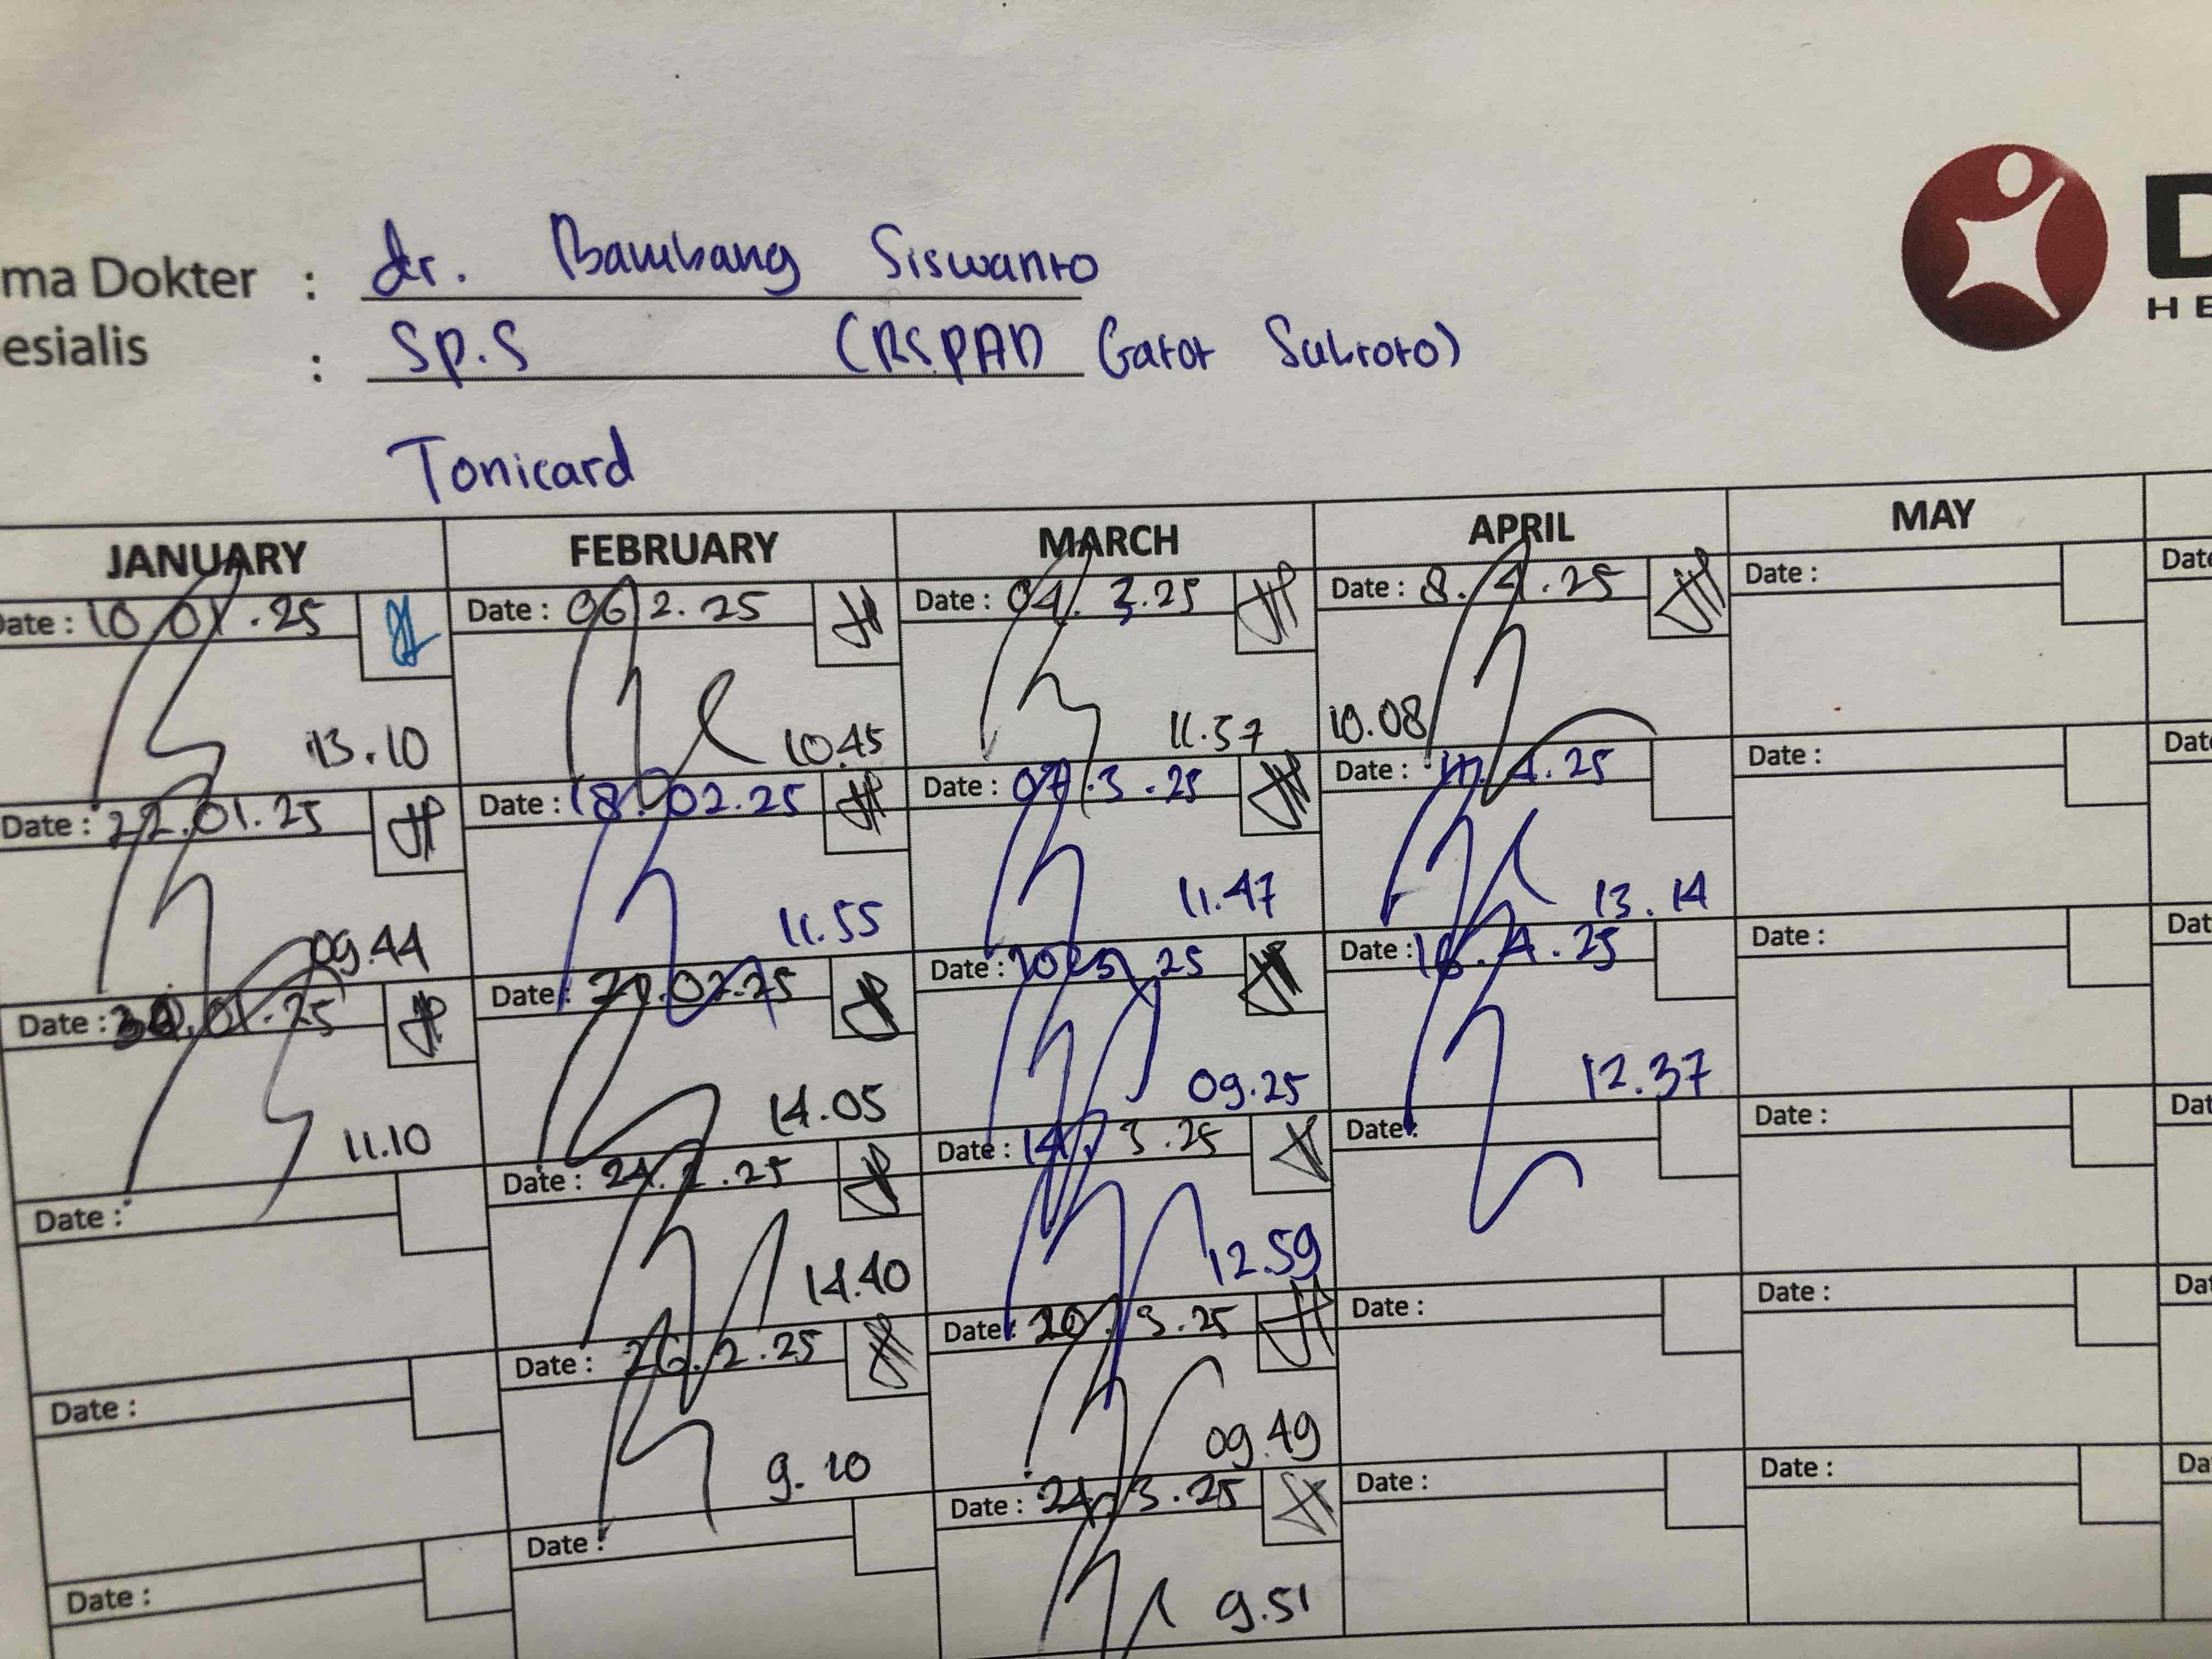 ma Dokter : dr. Bambang Siswanto
esialis : Sp.S (RSPAD Gatot Subroto)
D
HE
Tonicard
JANUARY FEBRUARY MARCH APRIL MAY
Date : 10.01.25 Date : 06.2.25 Date : 04.3.25 Date : 8.4.25 Date : Date
13.10 10.45 11.57 10.08
Date : 22.01.25 Date : 18.02.25 Date : 07.3.25 Date : 4.25 Date : Dat
09.44 11.55 11.47 13.14
Date : 01.25 Date : 02.25 Date : 25 Date : 16.4.25 Date : Dat
11.10 14.05 09.25 12.37
Date : Date : 24.2.25 Date : 14.3.25 Date : Date : Dat
14.40 12.59
Date : Date : 26.2.25 Date : 20.3.25 Date : Date : Dat
9.10 09.49
Date : Date : Date : 24.3.25 Date : Date : Da
9.51